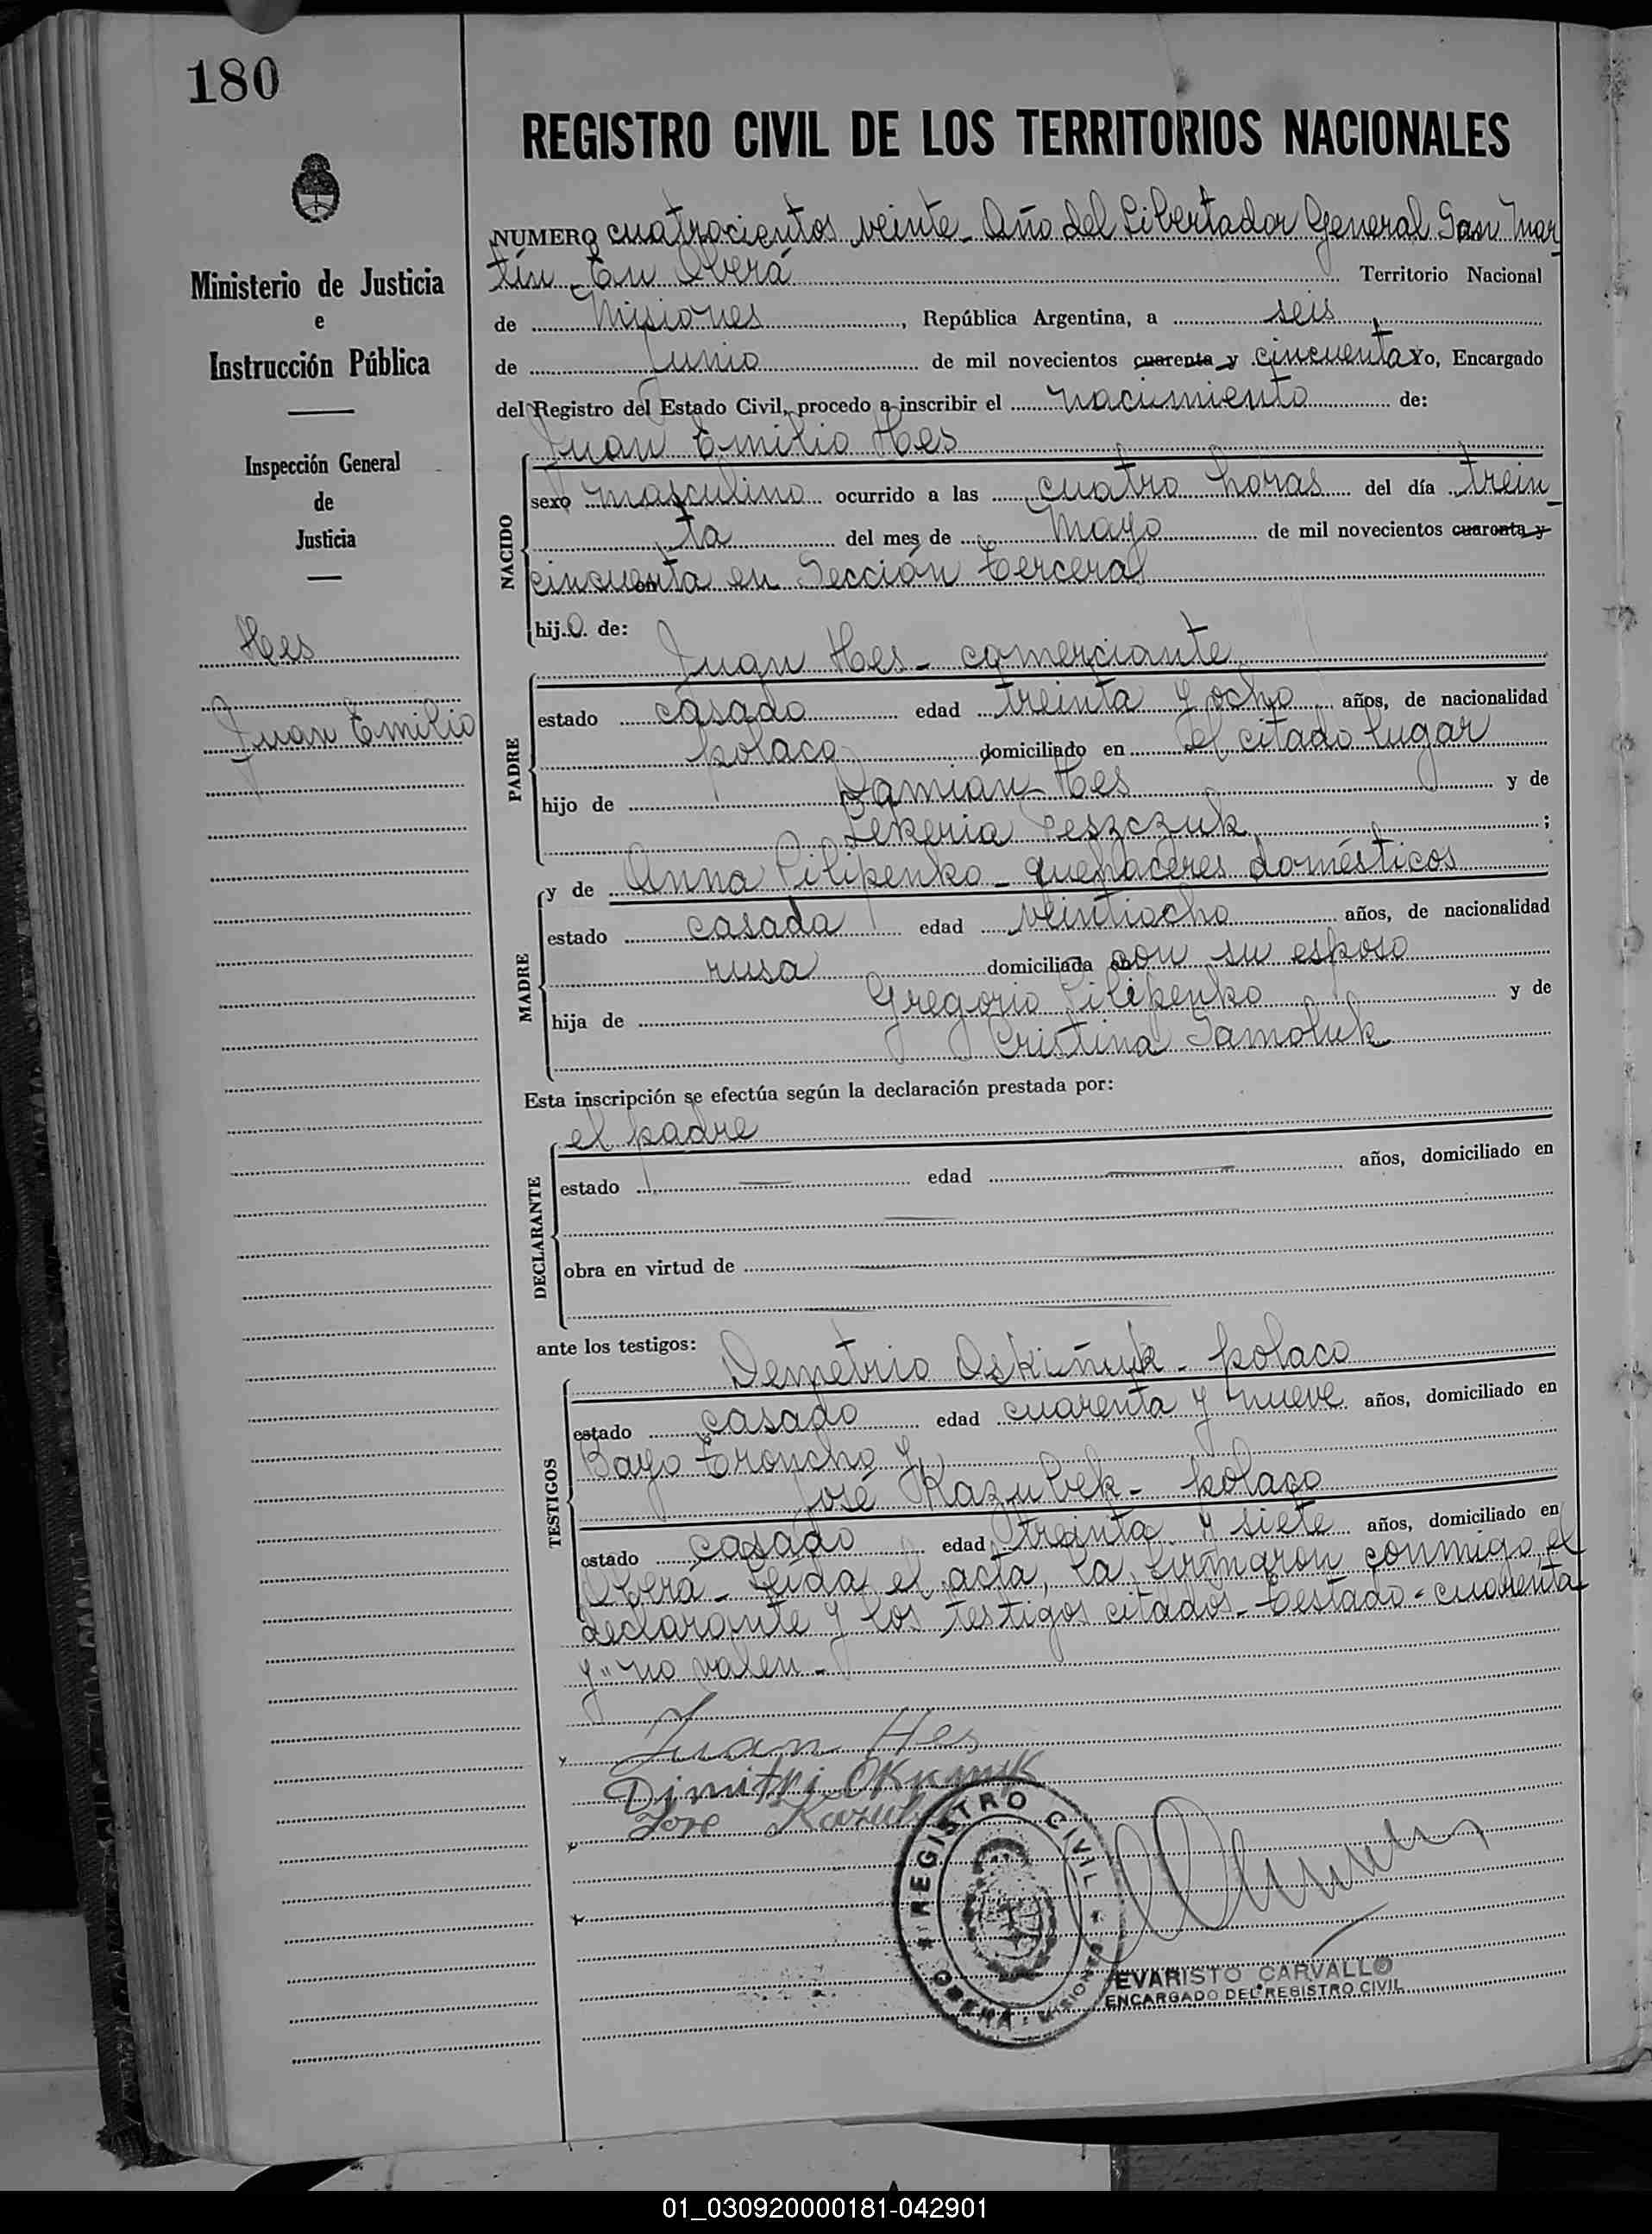 180
REGISTRO CIVIL DE LOS TERRITORIOS NACIONALES
Ministerio de Justicia
e
Instrucción Pública
Inspección General
de
Justicia
Hes
Juan Emilio
NUMERO cuatrocientos veinte - Año del Libertador General San Mar
tín - En Oberá Territorio Nacional
de Misiones, República Argentina, a seis
de Junio de mil novecientos cuarenta y cincuenta Yo, Encargado
del Registro del Estado Civil, procedo a inscribir el nacimiento de:
Juan Emilio Hes
NACIDO
sexo masculino ocurrido a las cuatro horas del día trein
ta del mes de Mayo de mil novecientos cuarenta y
cincuenta en Sección Tercera
hijo de:
PADRE
Juan Hes - comerciante
estado casado edad treinta y ocho años, de nacionalidad
polaco domiciliado en el citado lugar
hijo de Damian Hes y de
Lekeria Leszczuk ;
MADRE
y de Anna Pilipenko - quehaceres domésticos
estado casada edad veintiocho años, de nacionalidad
rusa domiciliada con su esposo
hija de Gregorio Pilipenko y de
Cristina Samoluk
Esta inscripción se efectúa según la declaración prestada por:
DECLARANTE
el padre
estado edad años, domiciliado en
obra en virtud de
ante los testigos:
TESTIGOS
Demetrio Oskiñuk - polaco
estado casado edad cuarenta y nueve años, domiciliado en
Bayo Troncho y
José Kazubek - polaco
estado casado edad treinta y siete años, domiciliado en
Oberá - Leida el acta, la firmaron conmigo, el
declarante y los testigos citados - Testado - cuarenta
y" no valen -
Juan Hes
Dimitri
Jose
REGISTRO CIVIL
OBERÁ - MISIONES
EVARISTO CARVALLO
ENCARGADO DEL REGISTRO CIVIL
01_030920000181-042901